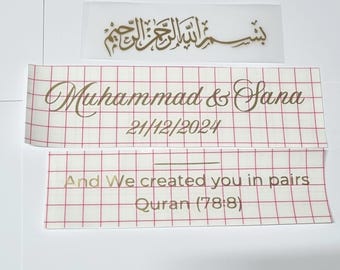 بسم الله الرحمن الرحيم
Muhammad & Sana
21/12/2024
And We created you in pairs
Quran (78:8)